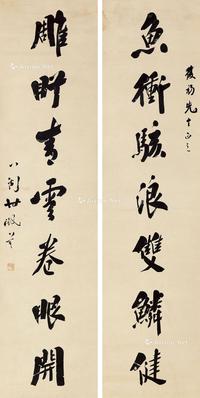 魚衝駭浪雙鱗健
先生正之
雕盼青雲卷眼開